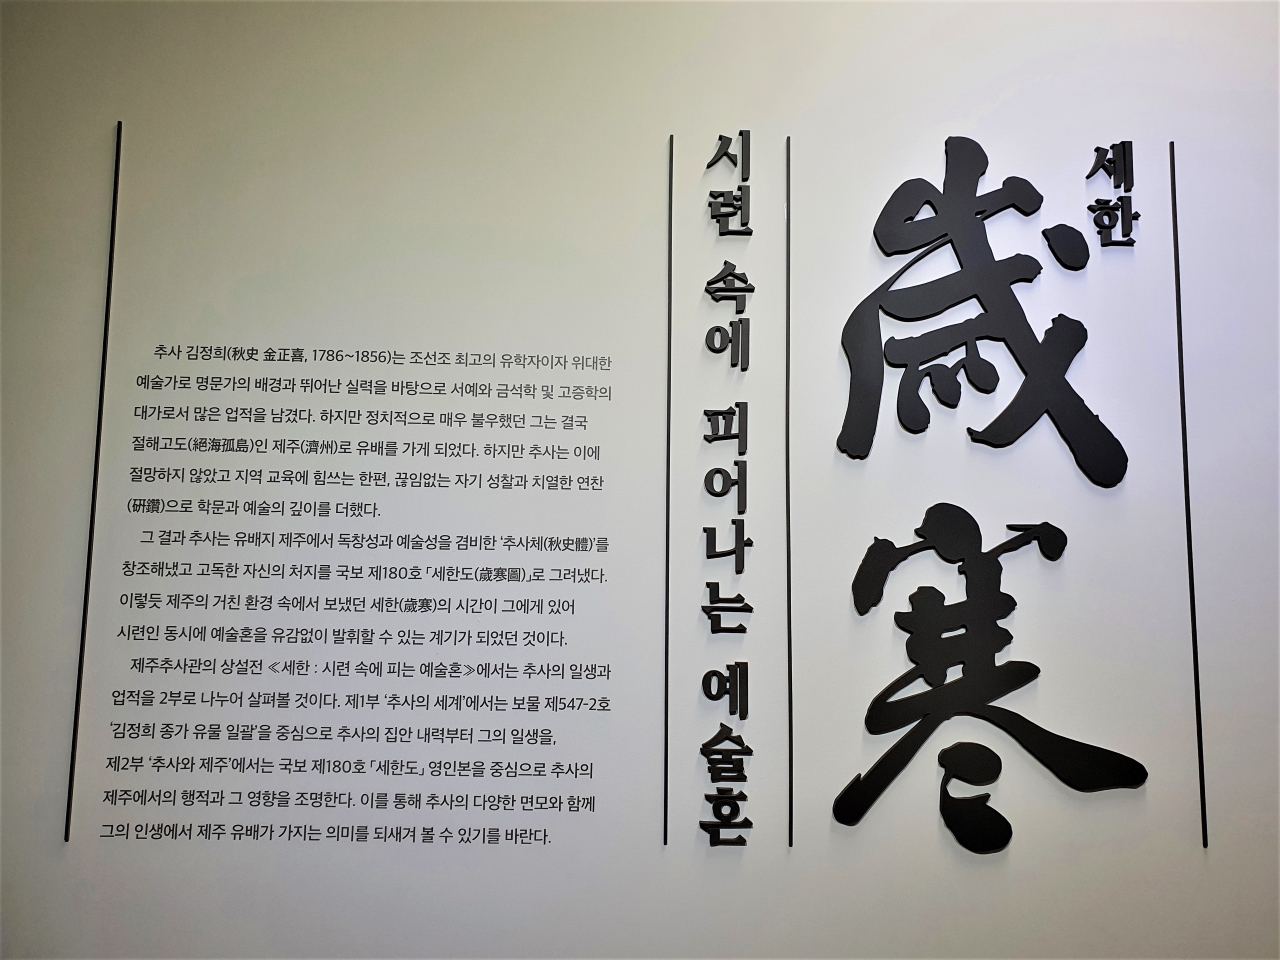 세한
歲寒
시련 속에 피어나는 예술혼
추사 김정희(秋史 金正喜, 1786~1856)는 조선조 최고의 유학자이자 위대한
예술가로 명문가의 배경과 뛰어난 실력을 바탕으로 서예와 금석학 및 고증학의
대가로서 많은 업적을 남겼다. 하지만 정치적으로 매우 불우했던 그는 결국
절해고도(絕海孤島)인 제주(濟州)로 유배를 가게 되었다. 하지만 추사는 이에
절망하지 않았고 지역 교육에 힘쓰는 한편, 끊임없는 자기 성찰과 치열한 연찬
(硏鑽)으로 학문과 예술의 깊이를 더했다.
그 결과 추사는 유배지 제주에서 독창성과 예술성을 겸비한 '추사체(秋史體)'를
창조해냈고 고독한 자신의 처지를 국보 제180호 「세한도(歲寒圖)」로 그려냈다.
이렇듯 제주의 거친 환경 속에서 보냈던 세한(歲寒)의 시간이 그에게 있어
시련인 동시에 예술혼을 유감없이 발휘할 수 있는 계기가 되었던 것이다.
제주추사관의 상설전 ≪세한 : 시련 속에 피는 예술혼≫에서는 추사의 일생과
업적을 2부로 나누어 살펴볼 것이다. 제1부 '추사의 세계'에서는 보물 제547-2호
'김정희 종가 유물 일괄'을 중심으로 추사의 집안 내력부터 그의 일생을,
제2부 '추사와 제주'에서는 국보 제180호 「세한도」 영인본을 중심으로 추사의
제주에서의 행적과 그 영향을 조명한다. 이를 통해 추사의 다양한 면모와 함께
그의 인생에서 제주 유배가 가지는 의미를 되새겨 볼 수 있기를 바란다.